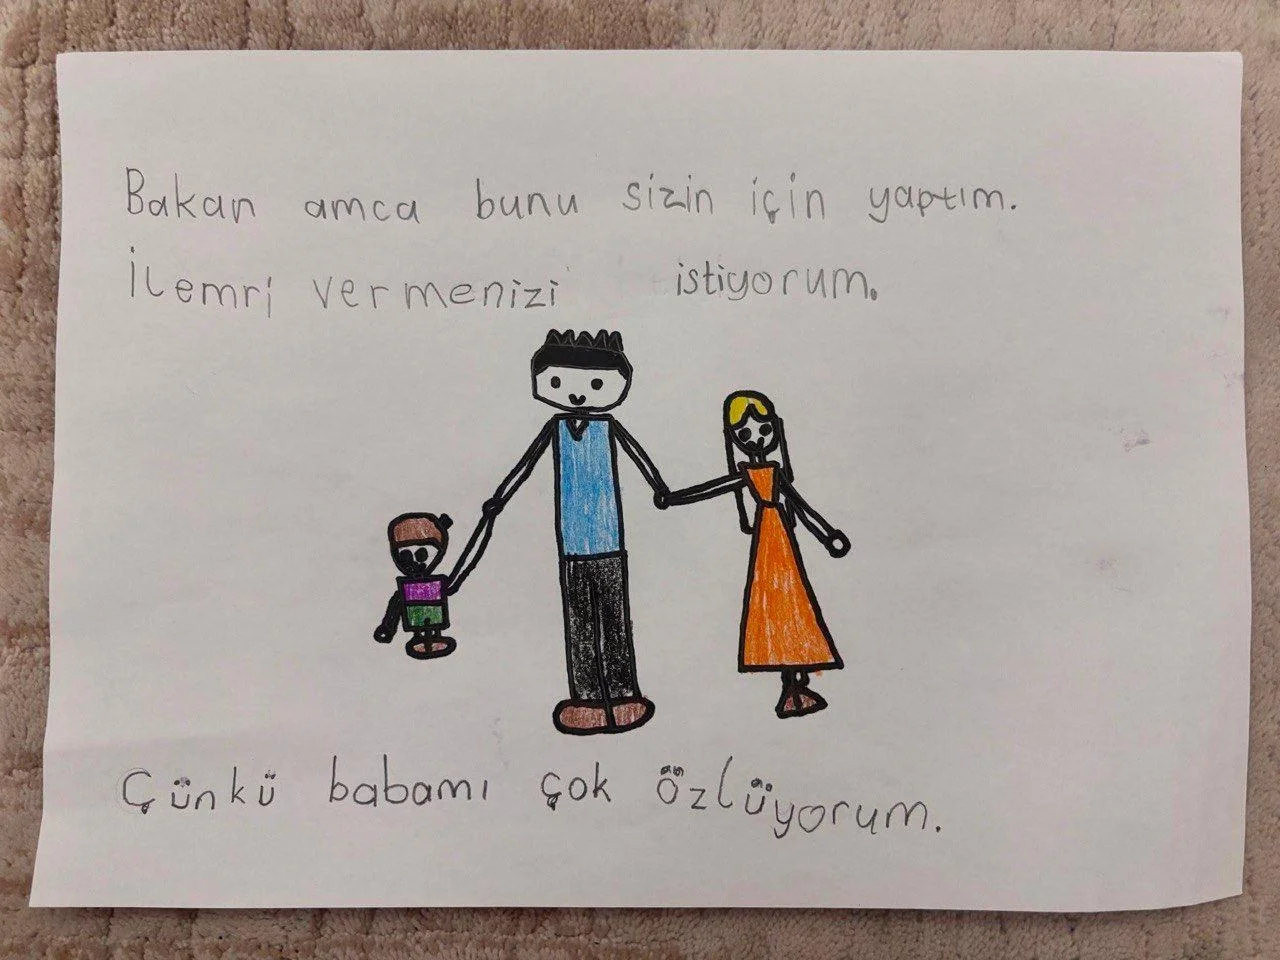 Bakan amca bunu sizin için yaptım.
İlemri vermenizi istiyorum.
Çünkü babamı çok özlüyorum.